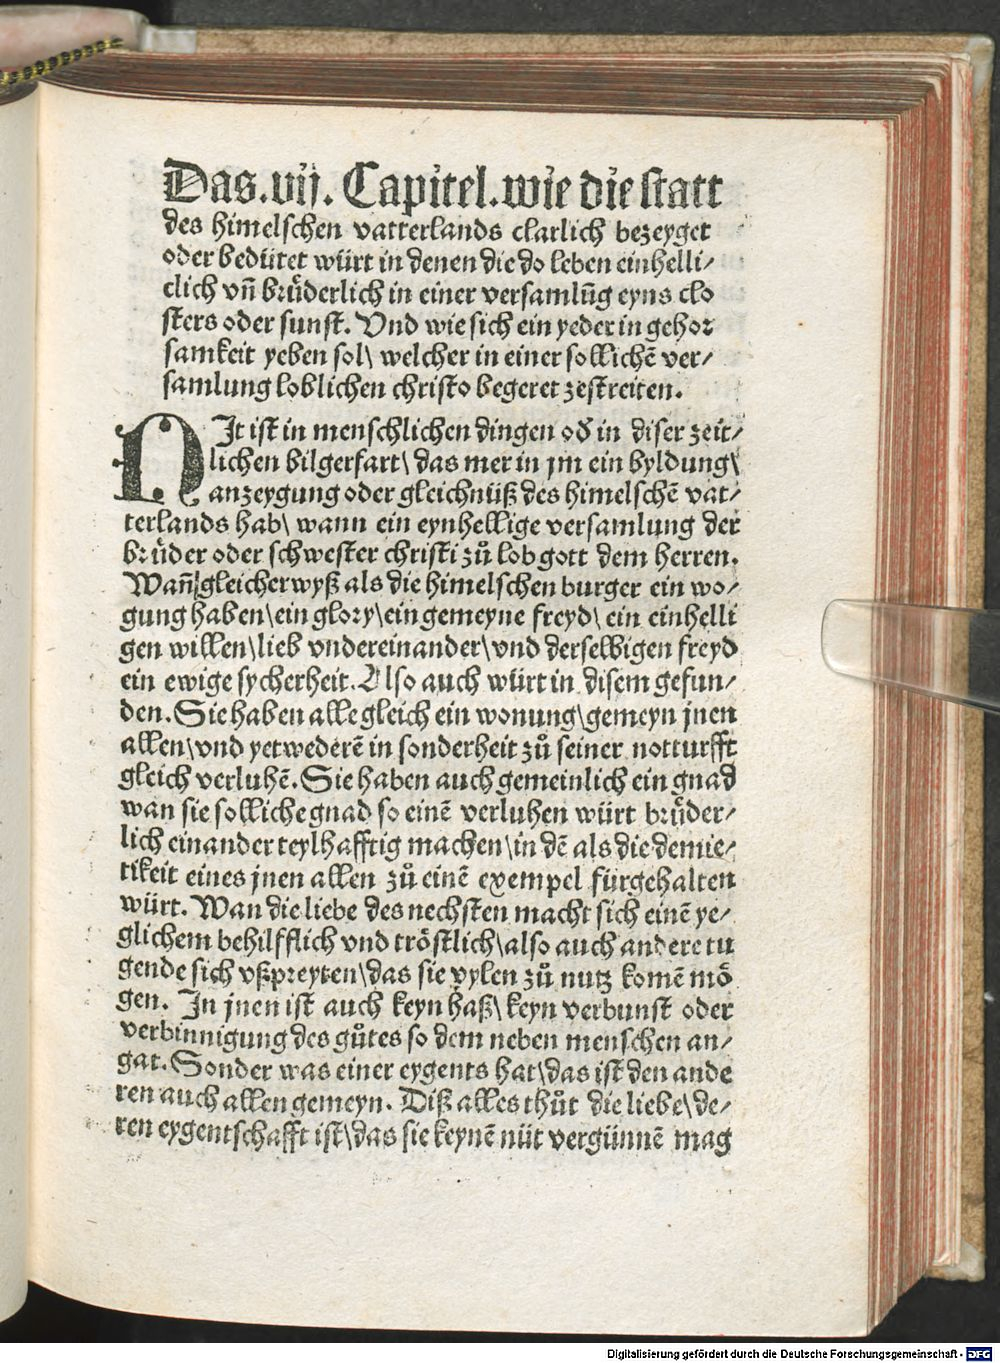 Das .vij. Capitel. wie die statt
des himelschen vatterlands clarlich bezeyget
oder bedütet würt in denen die do leben einhelli⸗
clich vñ brüderlich in einer versamlũg eyns clo
sters oder sunst. Vnd wie sich ein yeder in gehor
samkeit yeben sol\ welcher in einer sollichẽ ver⸗
samlung loblichen christo begeret zestreiten.
NIt ist in menschlichen dingen oď in diser zeit⸗
lichen bilgerfart\ das mer in jm ein byldung\
anzeygung oder gleichnüß des himelschẽ vat⸗
terlands hab\ wann ein eynhellige versamlung der
brůder oder schwester christi zů lob gott dem herren.
Wañ gleicher wyß als die himelschen burger ein wo⸗
gung haben\ ein glory\ ein gemeyne freyd\ ein einhelli
gen willen\ lieb vndereinander\ vnd derselbigen freyd
ein ewige sycherheit. Also auch würt in disem gefun⸗
den. Sie haben alle gleich ein wonung\ gemeyn jnen
allen\ vnd yetwederẽ in sonderheit zů seiner notturfft
gleich verluhẽ. Sie haben auch gemeinlich ein gnad
wan sie solliche gnad so einẽ verluhen würt brůder⸗
lich einander teylhafftig machen\ in dẽ als die demie⸗
tikeit eines jnen allen zů einẽ exempel fürgehalten
würt. Wan die liebe des nechsten macht sich einẽ ye⸗
glichem behilfflich vnd tröstlich\ also auch andere tu
gende sich vßpreyten\ das sie vylen zů nutz komẽ mö
gen. In jnen ist auch keyn haß\ keyn verbunst oder
verbinnigung des gůtes so dem neben menschen an⸗
gat. Sonder was einer eygents hat\ das ist den ande
ren auch allen gemeyn. Diß alles thůt die liebe\ de⸗
ren eygentschafft ist\ das sie keynẽ nüt vergünnẽ mag
Digitalisierung gefördert durch die Deutsche Forschungsgemeinschaft - DFG